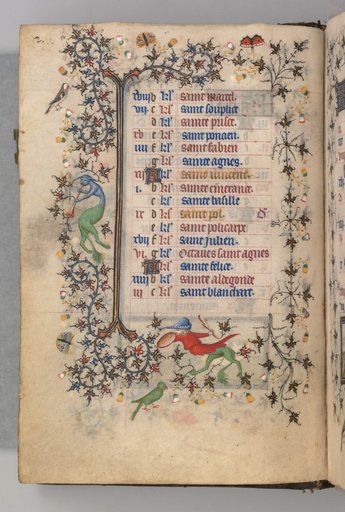 xviij b kl's saint marcel.
vij c kl's saint souplice
d kl's sainte prisce.
xv e kl's saint poncien.
iiij f kl's saint fabien
g kl's sainte agnes.
xij A kl's saint vincent.
i. b kl's sainte emerance.
c kl's sainte babille
ix d kl's saint pol.
e kl's saint policarpe
xvij f kl's saint julien.
vi g kl's Octaves saint agnes
A kl's sainte felice.
xiiij b kl's sainte aldegonde
iij c kl's saint blanchart.